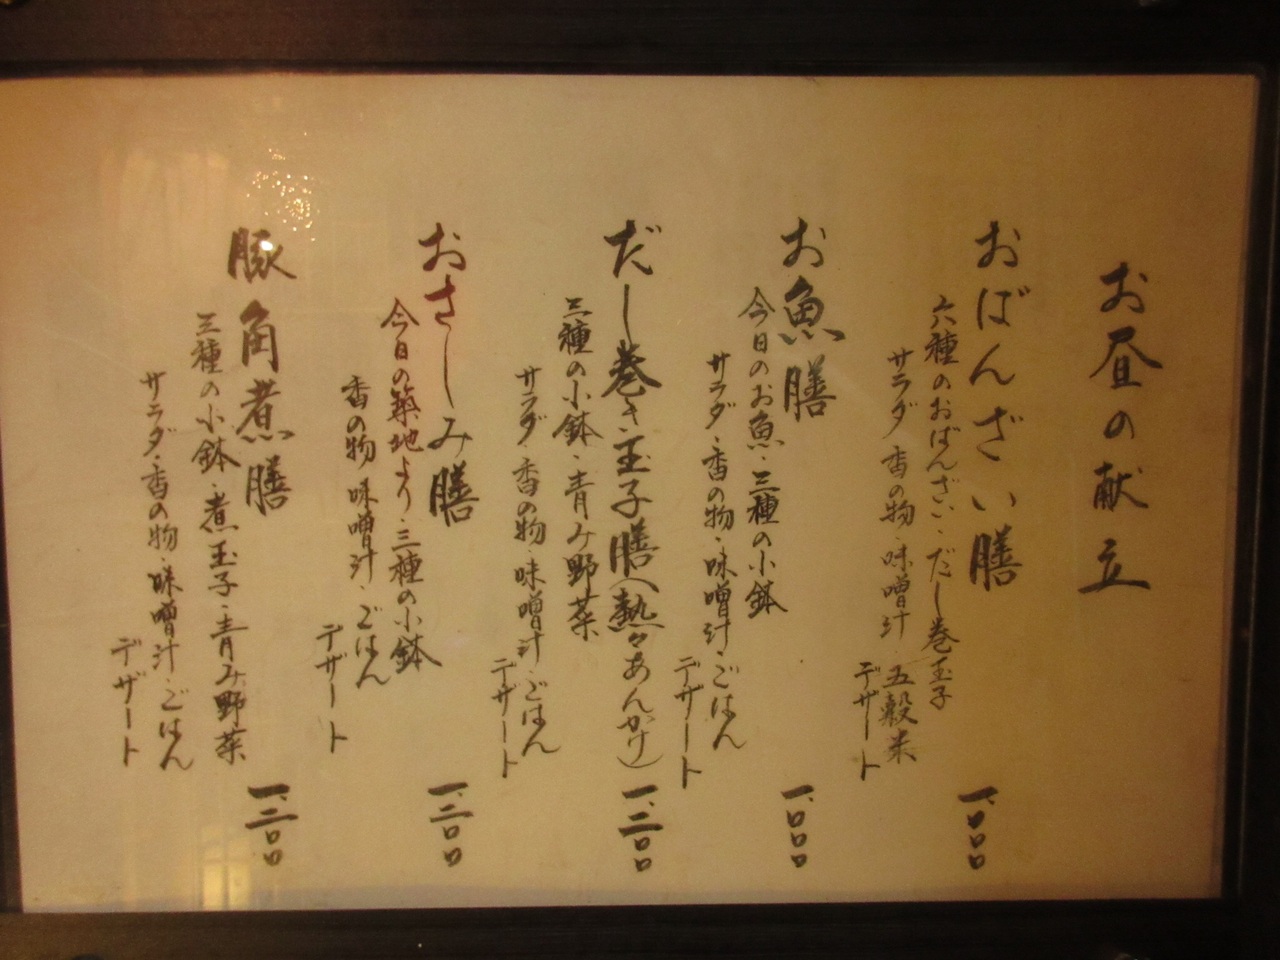 お昼の献立
おばんざい膳 一、〇〇〇
六種のおばんざい・だし巻玉子
サラダ・香の物・味噌汁・五穀米
デザート
お魚膳 一、〇〇〇
今日のお魚・三種の小鉢
サラダ・香の物・味噌汁・ごはん
デザート
だし巻き玉子膳(熱々あんかけ) 一、二〇〇
三種の小鉢・青み野菜
サラダ・香の物・味噌汁・ごはん
デザート
おさしみ膳 一、二〇〇
今日の築地より・三種の小鉢
香の物・味噌汁・ごはん
デザート
豚角煮膳 一、二〇〇
三種の小鉢・煮玉子・青み野菜
サラダ・香の物・味噌汁・ごはん
デザート